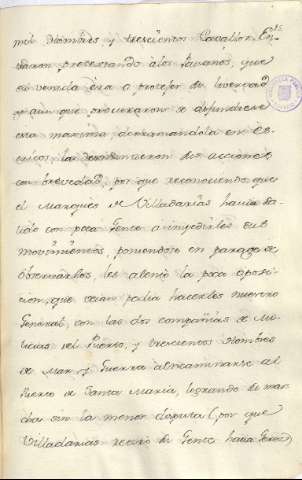 mil Hombres y trescientos Cavallos. En-
traron protestando a los Paisanos, que
su venida era a protejer su livertad
y aun que procuraron se difundiese
esta maxima derramandola en es-
critos, la desmintieron sus acciones
con brevedad, por que reconociendo que
el Marqués de Villadarias havia sa-
lido con poca Gente a impedirles sus
movimientos, poniendose en parage de
observarlos, les alentó la poca oposi-
cion, que veian podia hacerles nuestro
General, con las dos compañias de Mi-
licias del Puerto, y trescientos Hombres
de Mar, y Guerra a encaminarse al
Puerto de Santa Maria, logrando su mar-
cha sin la menor disputa (por que
Villadarias retiró su Gente hacia Jerez)